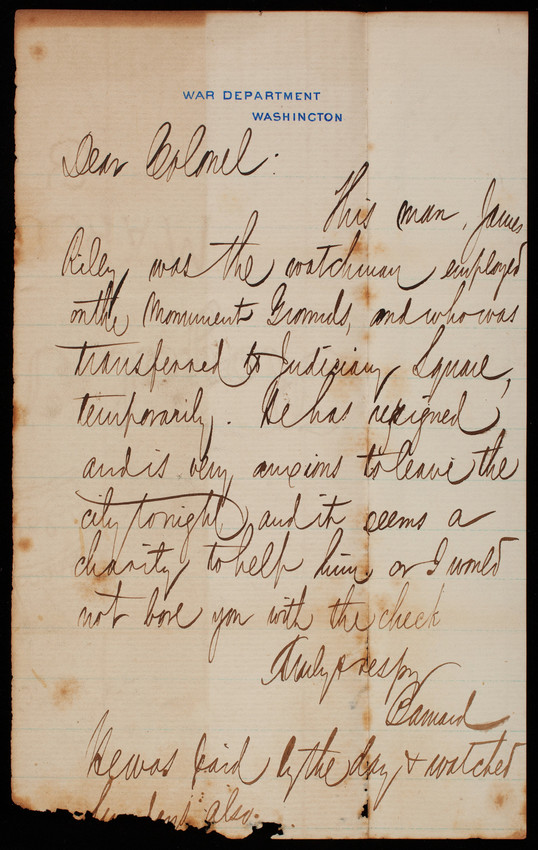 WAR DEPARTMENT
WASHINGTON
Dear Colonel:
This man, James
Riley was the watchman employed
on the Monument Grounds, and who was
transferred to Judiciary Square,
temporarily. He has resigned
and is very anxious to leave the
city tonight, and it seems a
charity to help him, or I would
not bore you with the check
Truly & respy
Barnard
He was paid by the day & watched
also.